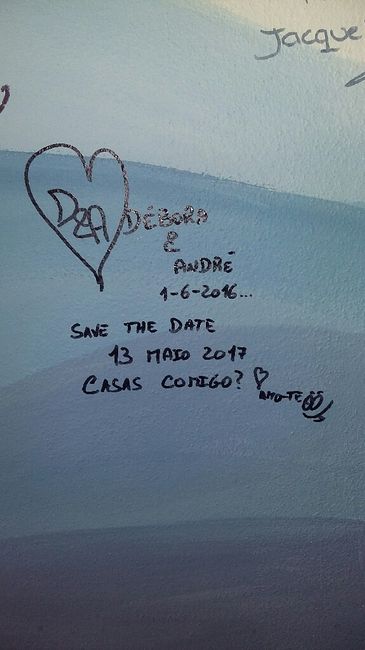 Jacque
D&A
DÉBORA
&
ANDRÉ
1-6-2016...
SAVE THE DATE
13 MAIO 2017
CASAS COMIGO?
AMO-TE